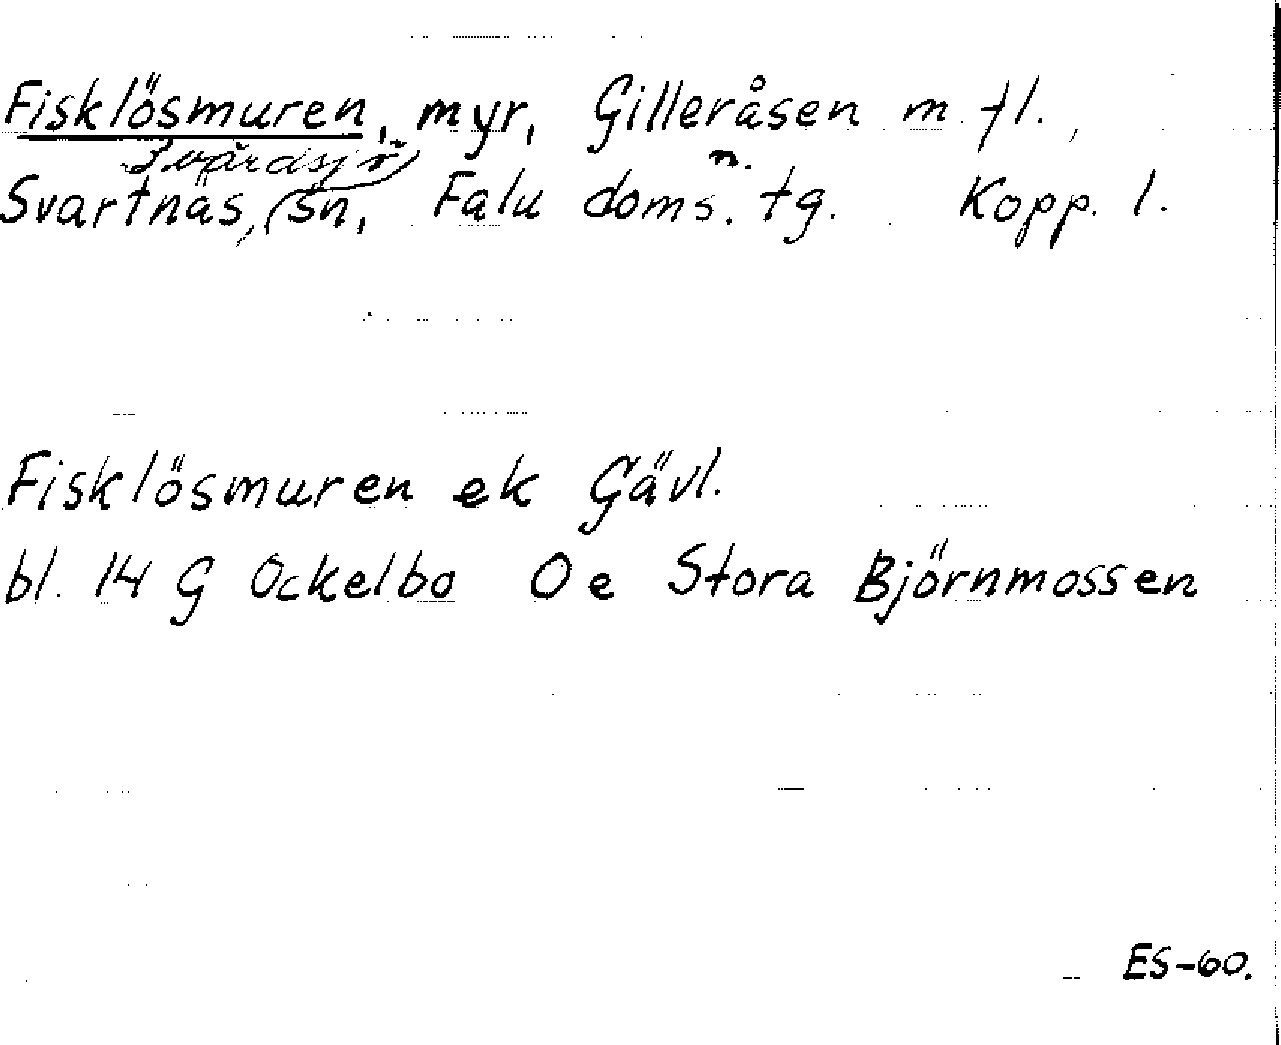 Fisklösmuren, myr, Gilleråsen m. fl.,
Svartnäs, Svärdsjö sn, Falu doms. n. tg. Kopp. l.
Fisklösmuren ek Gävl.
bl. 14 G Ockelbo 0 e Stora Björnmossen
ES-60.